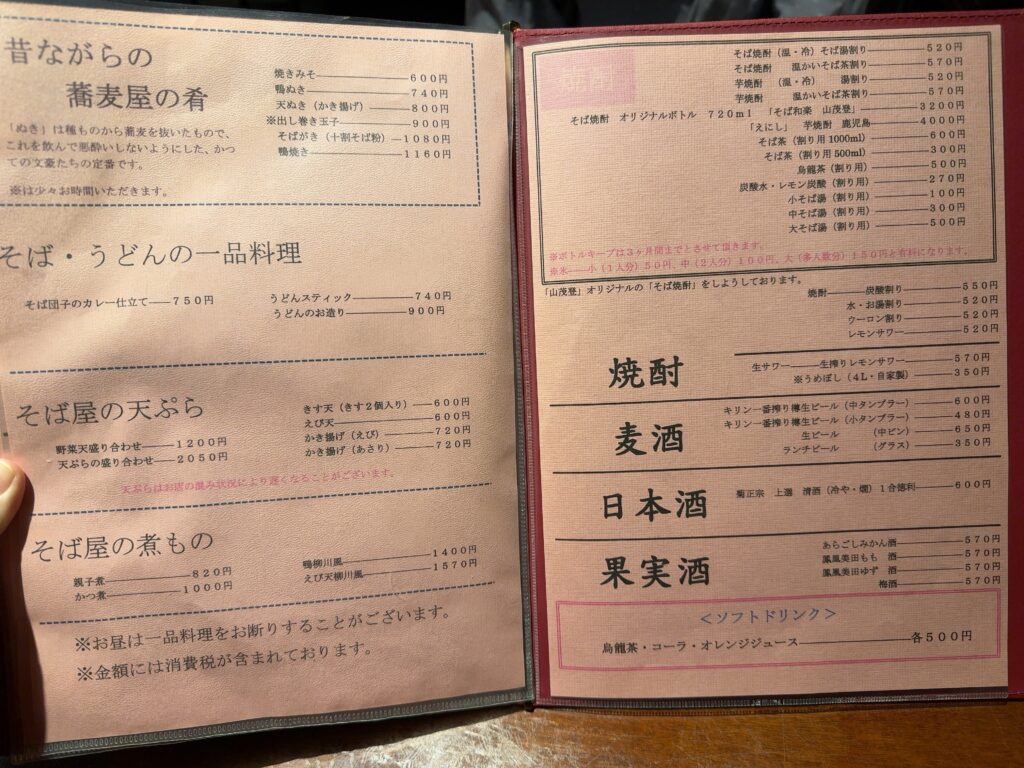 昔ながらの
蕎麦屋の肴
「ぬき」は種ものから蕎麦を抜いたもので、
これを飲んで悪酔いしないようにした、かつ
ての文豪たちの定番です。
※は少々お時間いただきます。
焼きみそ――――600円
鴨ぬき――――740円
天ぬき(かき揚げ)――――800円
※出し巻き玉子――――900円
そばがき(十割そば粉)―1080円
鴨焼き――――1160円
そば・うどんの一品料理
そば団子のカレー仕立て――750円
うどんスティック――――740円
うどんのお造り――――900円
そば屋の天ぷら
野菜天盛り合わせ――1200円
天ぷらの盛り合わせ――2050円
きす天(きす2個入り)――600円
えび天――――600円
かき揚げ(えび)――――720円
かき揚げ(あさり)――――720円
天ぷらはお店の混み状況により遅くなることがございます。
そば屋の煮もの
親子煮――――820円
かつ煮――――1000円
鴨柳川風――――1400円
えび天柳川風――――1570円
※お昼は一品料理をお断りすることがございます。
※金額には消費税が含まれております。
そば焼酎(温・冷)そば湯割り――――520円
そば焼酎 温かいそば茶割り――――570円
芋焼酎 (温・冷) 湯割り――――520円
芋焼酎 温かいそば茶割り――――570円
そば焼酎 オリジナルボトル 720ml 「そば和楽 山茂登」――――3200円
「えにし」 芋焼酎 鹿児島――――4000円
そば茶(割り用1000ml)――――600円
そば茶(割り用500ml)――――300円
烏龍茶(割り用)――――500円
炭酸水・レモン炭酸(割り用)――――270円
小そば湯(割り用)――――100円
中そば湯(割り用)――――300円
大そば湯(割り用)――――500円
※ボトルキープは3ヶ月間までとさせて頂きます。
※氷――小(1人分)50円、中(2人分)100円、大(多人数分)150円と有料になります。
「山茂登」オリジナルの「そば焼酎」をしようしております。
焼酎――――炭酸割り――――550円
水・お湯割り――――520円
ウーロン割り――――520円
レモンサワー――――520円
焼酎
生サワー――――生搾りレモンサワー――――570円
※うめぼし(4L・自家製)――――350円
麦酒
キリン一番搾り樽生ビール(中タンブラー)――――600円
キリン一番搾り樽生ビール(小タンブラー)――――480円
生ビール (中ビン)――――650円
ランチビール (グラス)――――350円
日本酒
菊正宗 上選 清酒(冷や・燗)1合徳利――――600円
果実酒
あらごしみかん酒――――570円
鳳凰美田もも 酒――――570円
鳳凰美田ゆず 酒――――570円
梅酒――――570円
<ソフトドリンク>
烏龍茶・コーラ・オレンジジュース――――各500円